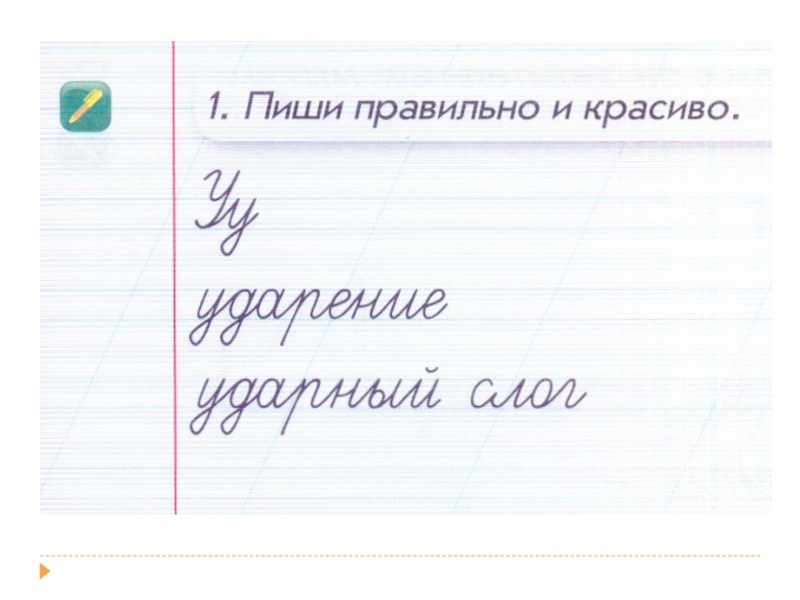 1. Пиши правильно и красиво.
Уу
ударение
ударный слог